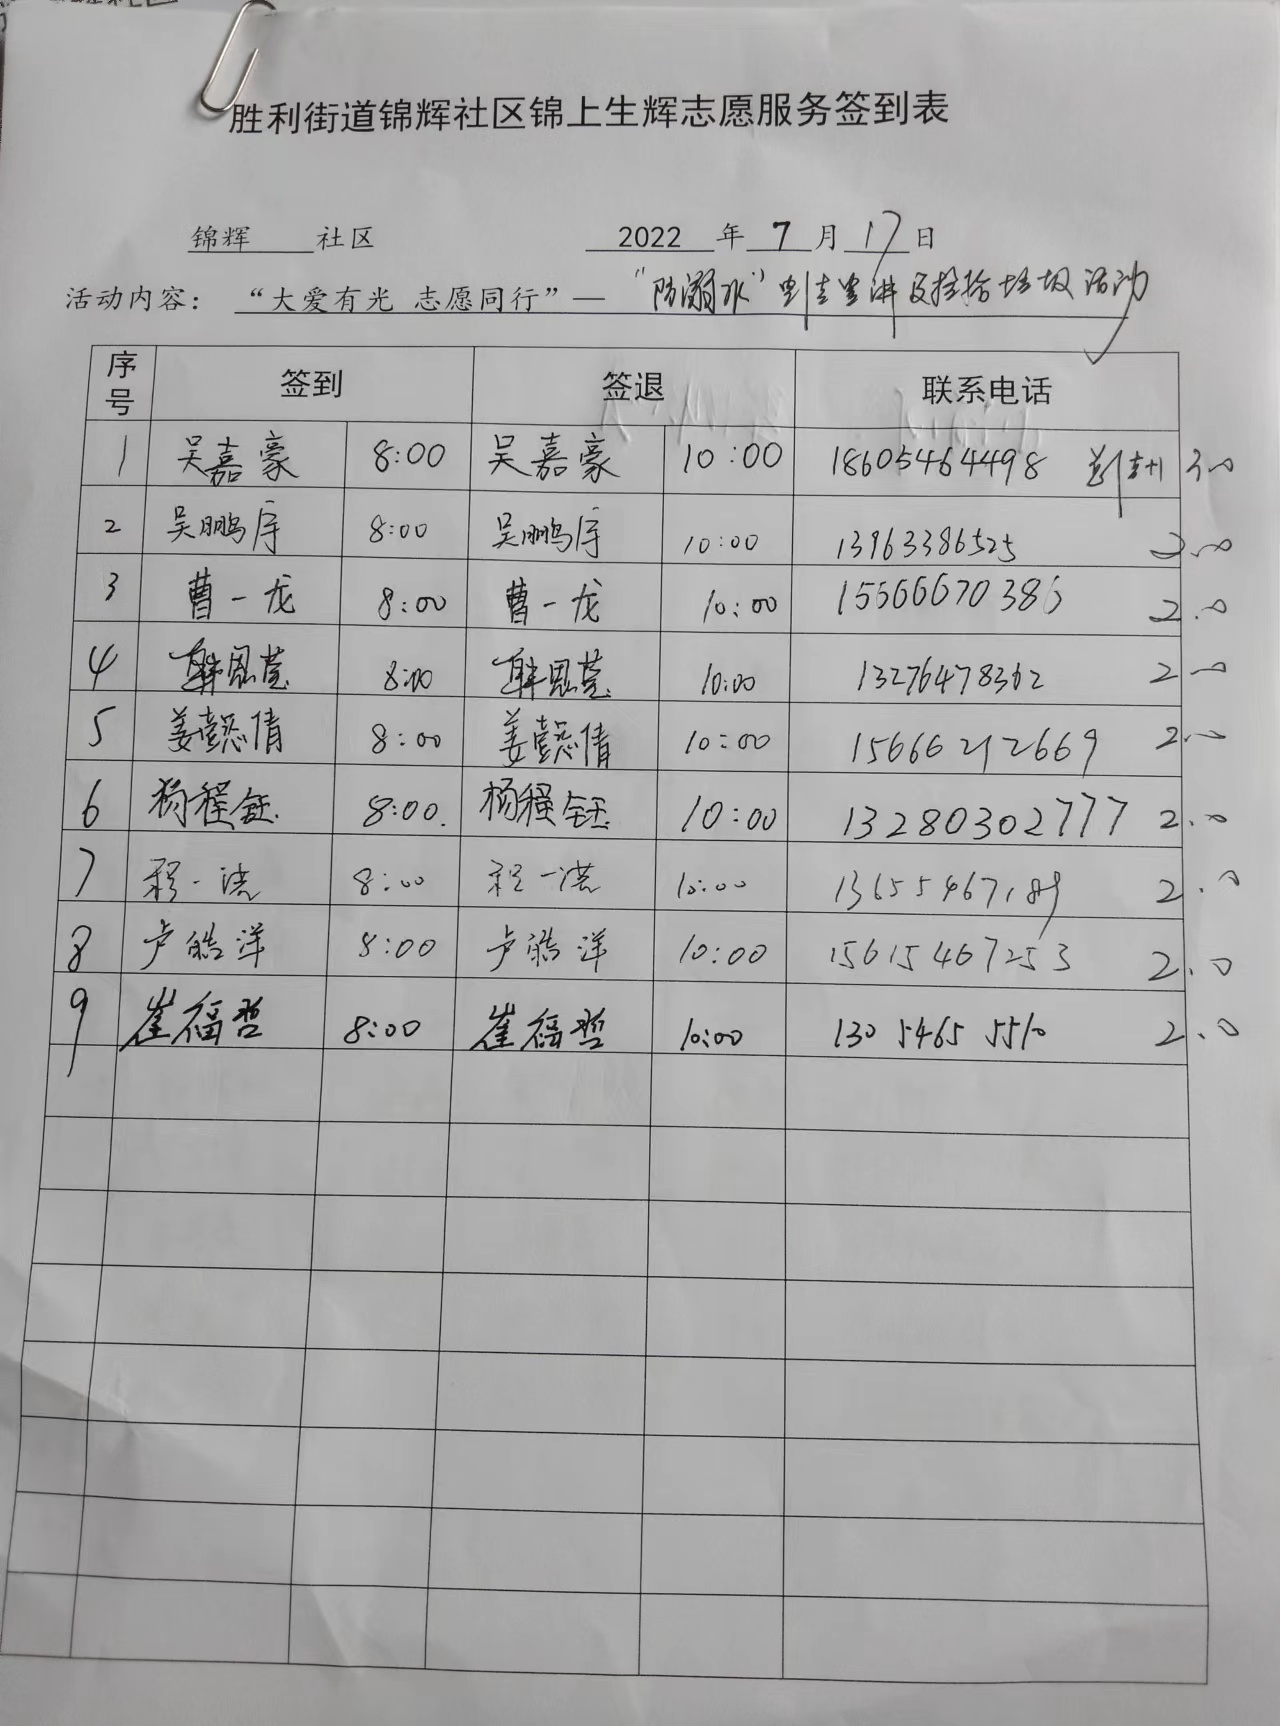 胜利街道锦辉社区锦上生辉志愿服务签到表
锦辉 社区 2022 年 7 月 17 日
活动内容: “大爱有光 志愿同行”— “防溺水” 宣讲及捡拾垃圾活动
序号 签到 签退 联系电话
1 吴嘉豪 8:00 吴嘉豪 10:00 18605464498 3.0
2 吴鹏宇 8:00 吴鹏宇 10:00 13963386525 2.0
3 曹一龙 8:00 曹一龙 10:00 15566670386 2.0
4 韩恩莹 8:00 韩恩莹 10:00 13276478362 2.0
5 姜懿倩 8:00 姜懿倩 10:00 15666212669 2.0
6 杨程钰 8:00 杨程钰 10:00 13280302777 2.0
7 程一洪 8:00 程一洪 10:00 13655467189 2.0
8 卢皓洋 8:00 卢皓洋 10:00 15615467253 2.0
9 崔福哲 8:00 崔福哲 10:00 13054655510 2.0